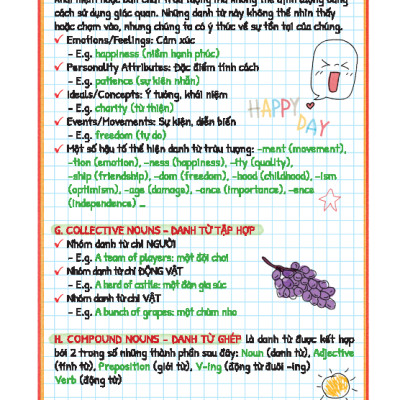 cách sử dụng giác quan. Những danh từ này không thể nhìn thấy
hoặc chạm vào, nhưng chúng ta có ý thức về sự tồn tại của chúng.
✓ Emotions/Feelings: Cảm xúc
– E.g. happiness (niềm hạnh phúc)
✓ Personality Attributes: Đặc điểm tính cách
– E.g. patience (sự kiên nhẫn)
✓ Ideals/Concepts: Ý tưởng, khái niệm
– E.g. charity (từ thiện)
✓ Events/Movements: Sự kiện, diễn biến
– E.g. freedom (tự do)
HAPPY
DAY
✓ Một số hậu tố thể hiện danh từ trừu tượng: -ment (movement),
-tion (emotion), -ness (happiness), -ity (quality),
-ship (friendship), -dom (freedom), -hood (childhood), -ism
(optimism), -age (damage), -ance (importance), -ence
(independence) ...
G. COLLECTIVE NOUNS – DANH TỪ TẬP HỢP
✓ Nhóm danh từ chỉ NGƯỜI
– E.g. A team of players: một đội chơi
✓ Nhóm danh từ chỉ ĐỘNG VẬT
– E.g. A herd of cattle: một đàn gia súc
✓ Nhóm danh từ chỉ VẬT
– E.g. A bunch of grapes: một chùm nho
H. COMPOUND NOUNS – DANH TỪ GHÉP là danh từ được kết hợp
bởi 2 trong số những thành phần sau đây: Noun (danh từ), Adjective
(tính từ), Preposition (giới từ), V-ing (động từ đuôi -ing)
Verb (động từ)